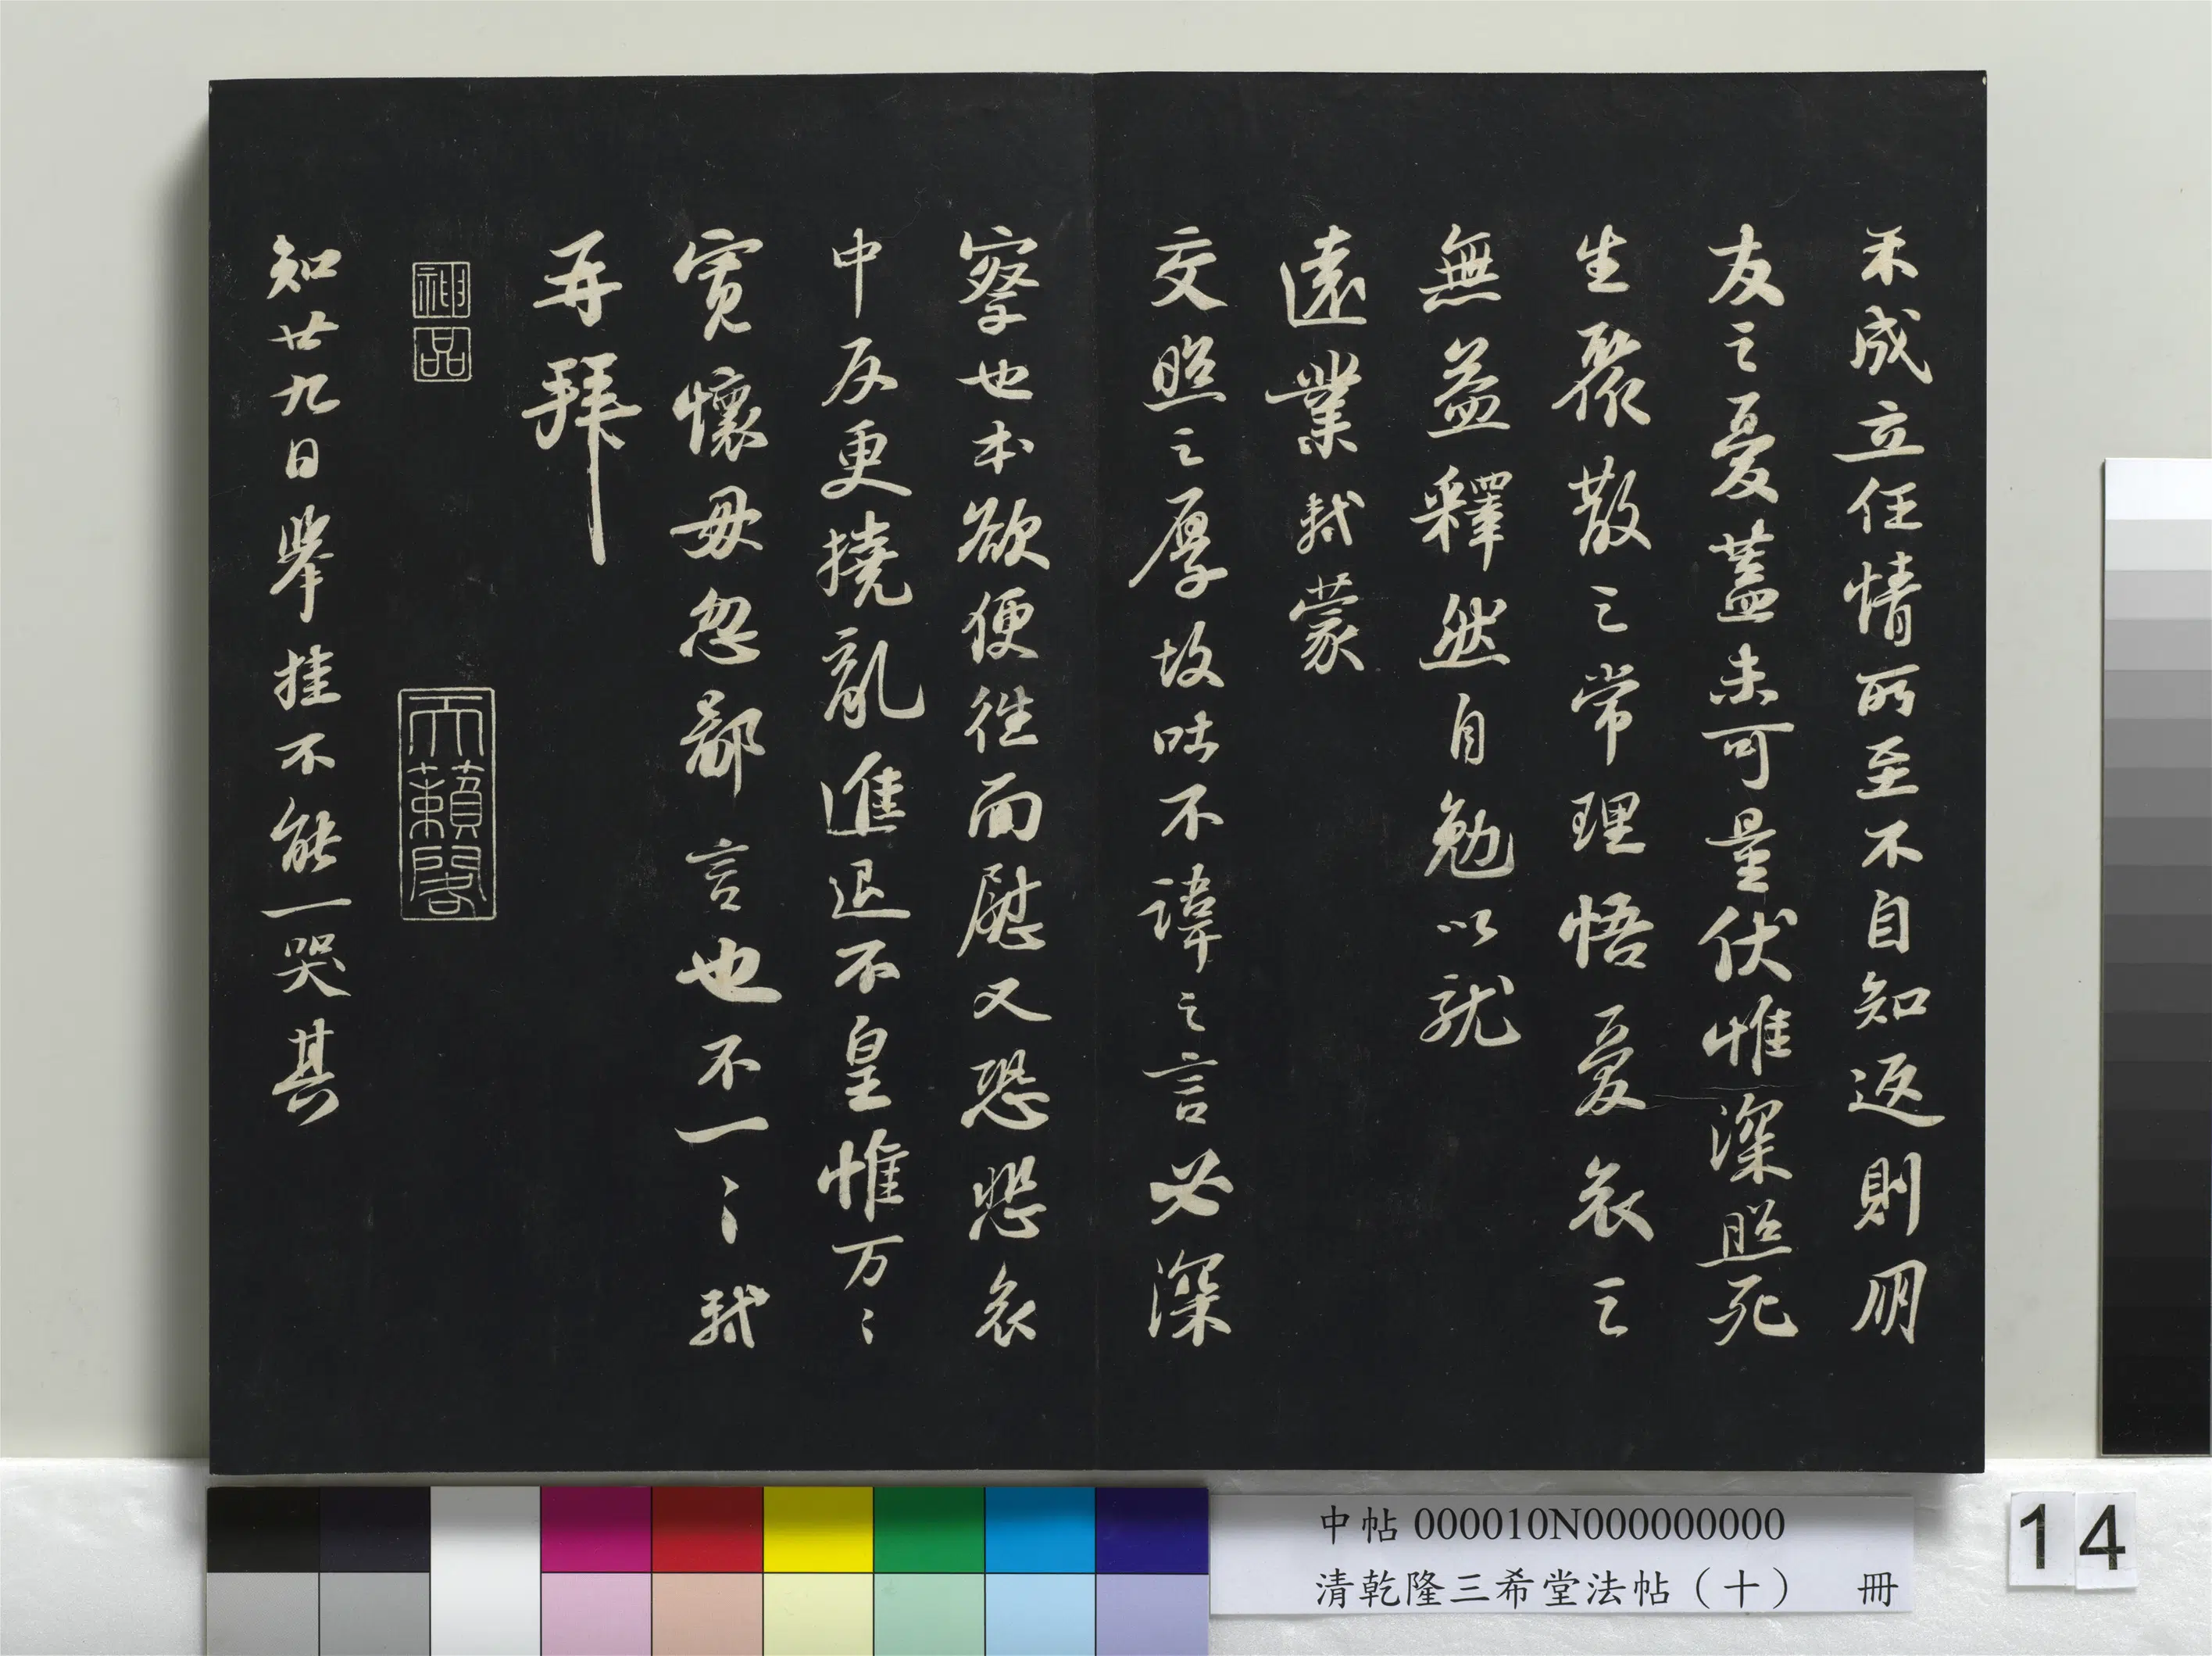 不成立任情所至不自知返則朋
友之憂蓋未可量伏惟深照死
生聚散之常理悟憂哀之
無益釋然自勉以就
遠業軾蒙
交照之厚故吐不諱之言必深
察也本欲便往面慰又恐悲哀
中反更撓亂進退不皇惟万〻
寬懷毋忽鄙言也不一〻軾
再拜
神品
天籟閣
知廿九日舉挂不能一哭其
中帖 000010N000000000
清乾隆三希堂法帖（十） 冊
14